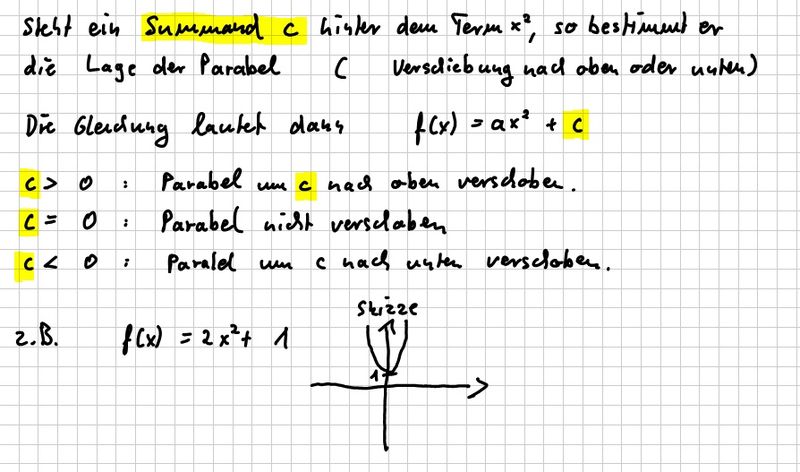 Steht ein Summand c hinter dem Term x², so bestimmt er
die Lage der Parabel ( Verschiebung nach oben oder unten)
Die Gleichung lautet dann f(x) = ax² + c
c > 0 : Parabel um c nach oben verschoben.
c = 0 : Parabel nicht verschoben
c < 0 : Parabel um c nach unten verschoben.
Skizze
z.B. f(x) = 2x² + 1
1